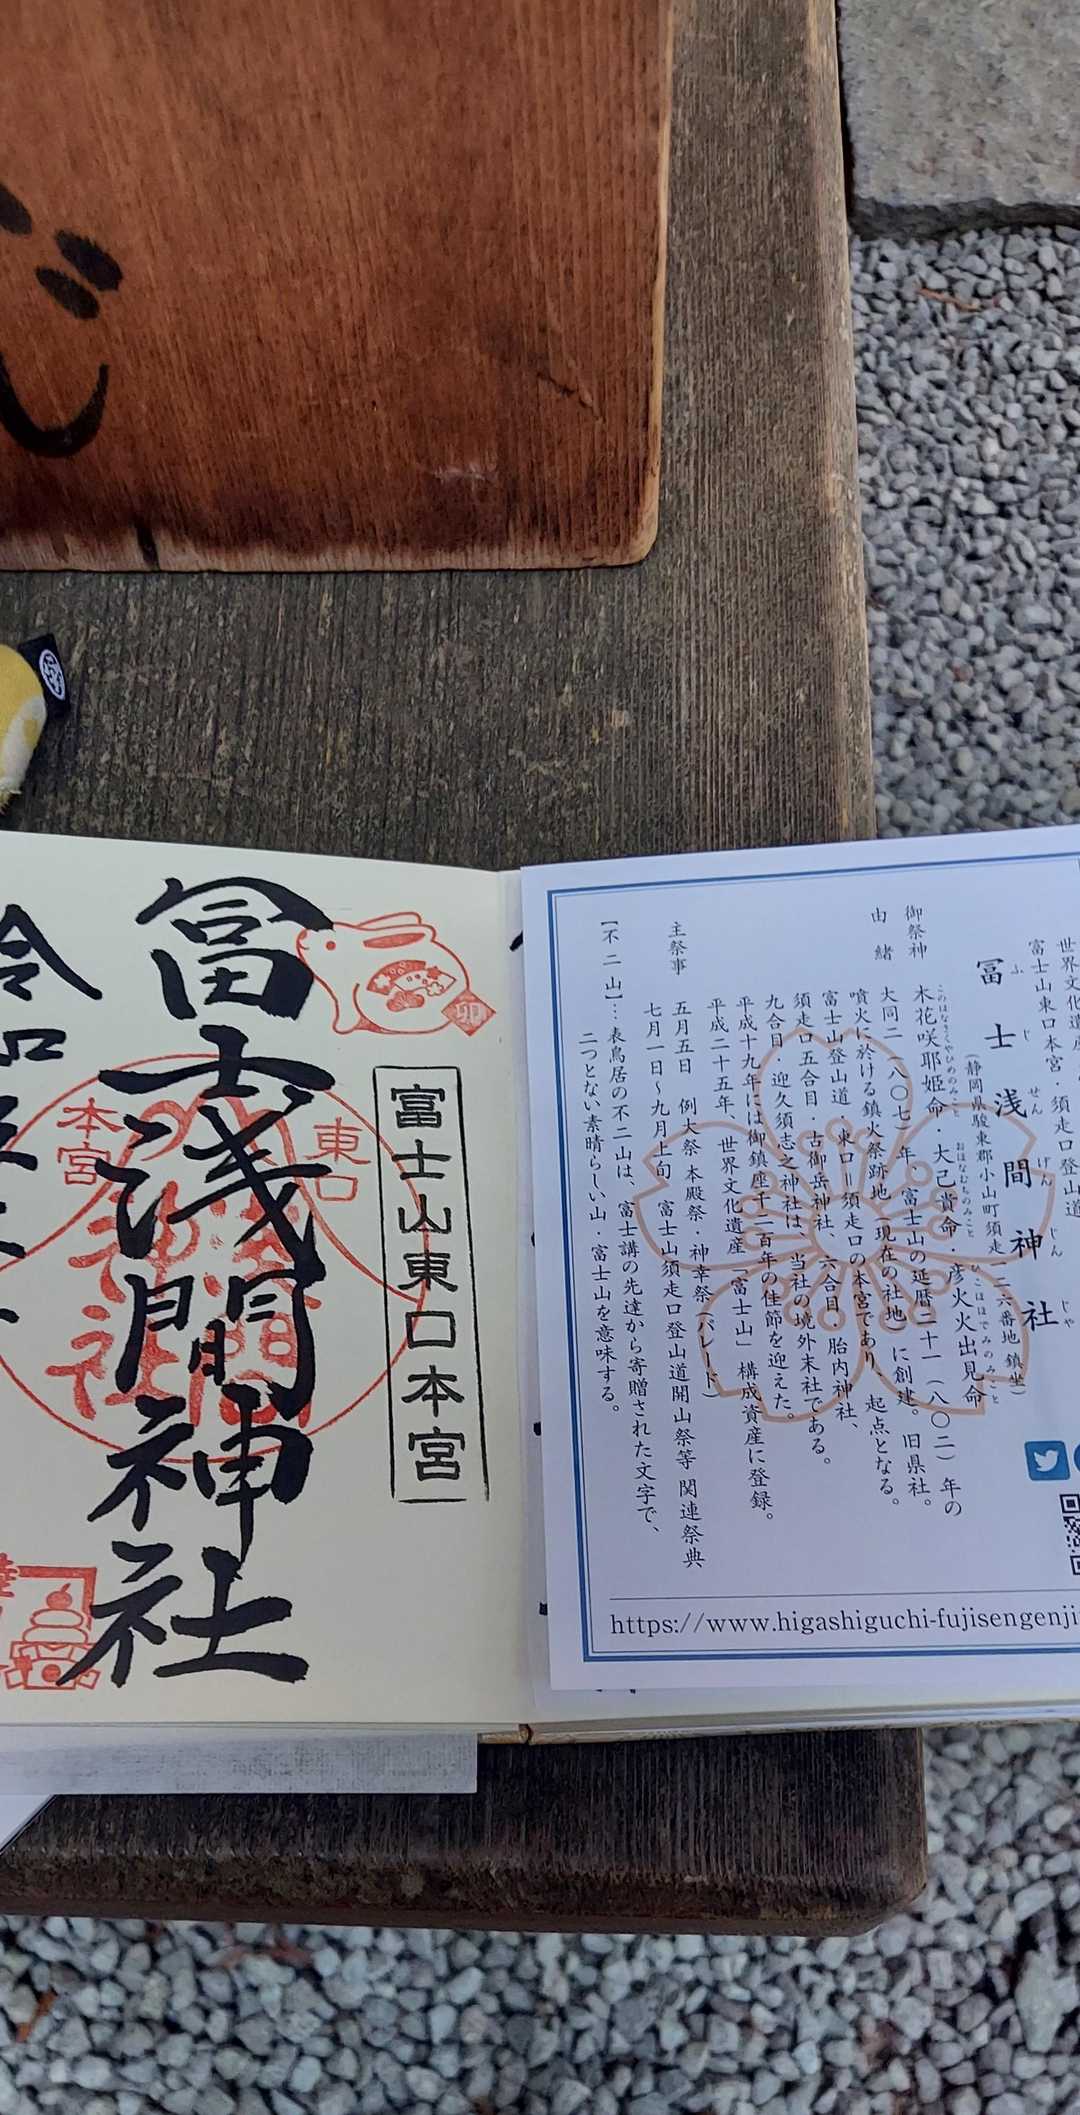 じ
冨士浅間神社
富士山東口本宮
卯
東口
本宮
世界文化遺産
富士山東口本宮・須走口登山道
冨士浅間神社
ふじせんげんじんじゃ
(静岡県駿東郡小山町須走一二六番地 鎮坐)
御祭神 木花咲耶姫命・大己貴命・彦火火出見命
このはなさくやひめのみこと おほなむちのみこと ひこほほでみのみこと
由緒 大同二(八〇七)年、富士山の延暦二十一(八〇二)年の
噴火に於ける鎮火祭跡地(現在の社地)に創建。旧県社。
富士山登山道・東口=須走口の本宮であり、起点となる。
須走口五合目・古御岳神社、六合目・胎内神社、
九合目・迎久須志之神社は、当社の境外末社である。
平成十九年には御鎮座千二百年の佳節を迎えた。
平成二十五年、世界文化遺産「富士山」構成資産に登録。
主祭事 五月五日 例大祭 本殿祭・神幸祭(パレード)
七月一日～九月上旬 富士山須走口登山道開山祭等 関連祭典
【不二山】…表鳥居の不二山は、富士講の先達から寄贈された文字で、
二つとない素晴らしい山・富士山を意味する。
https://www.higashiguchi-fujisengenji